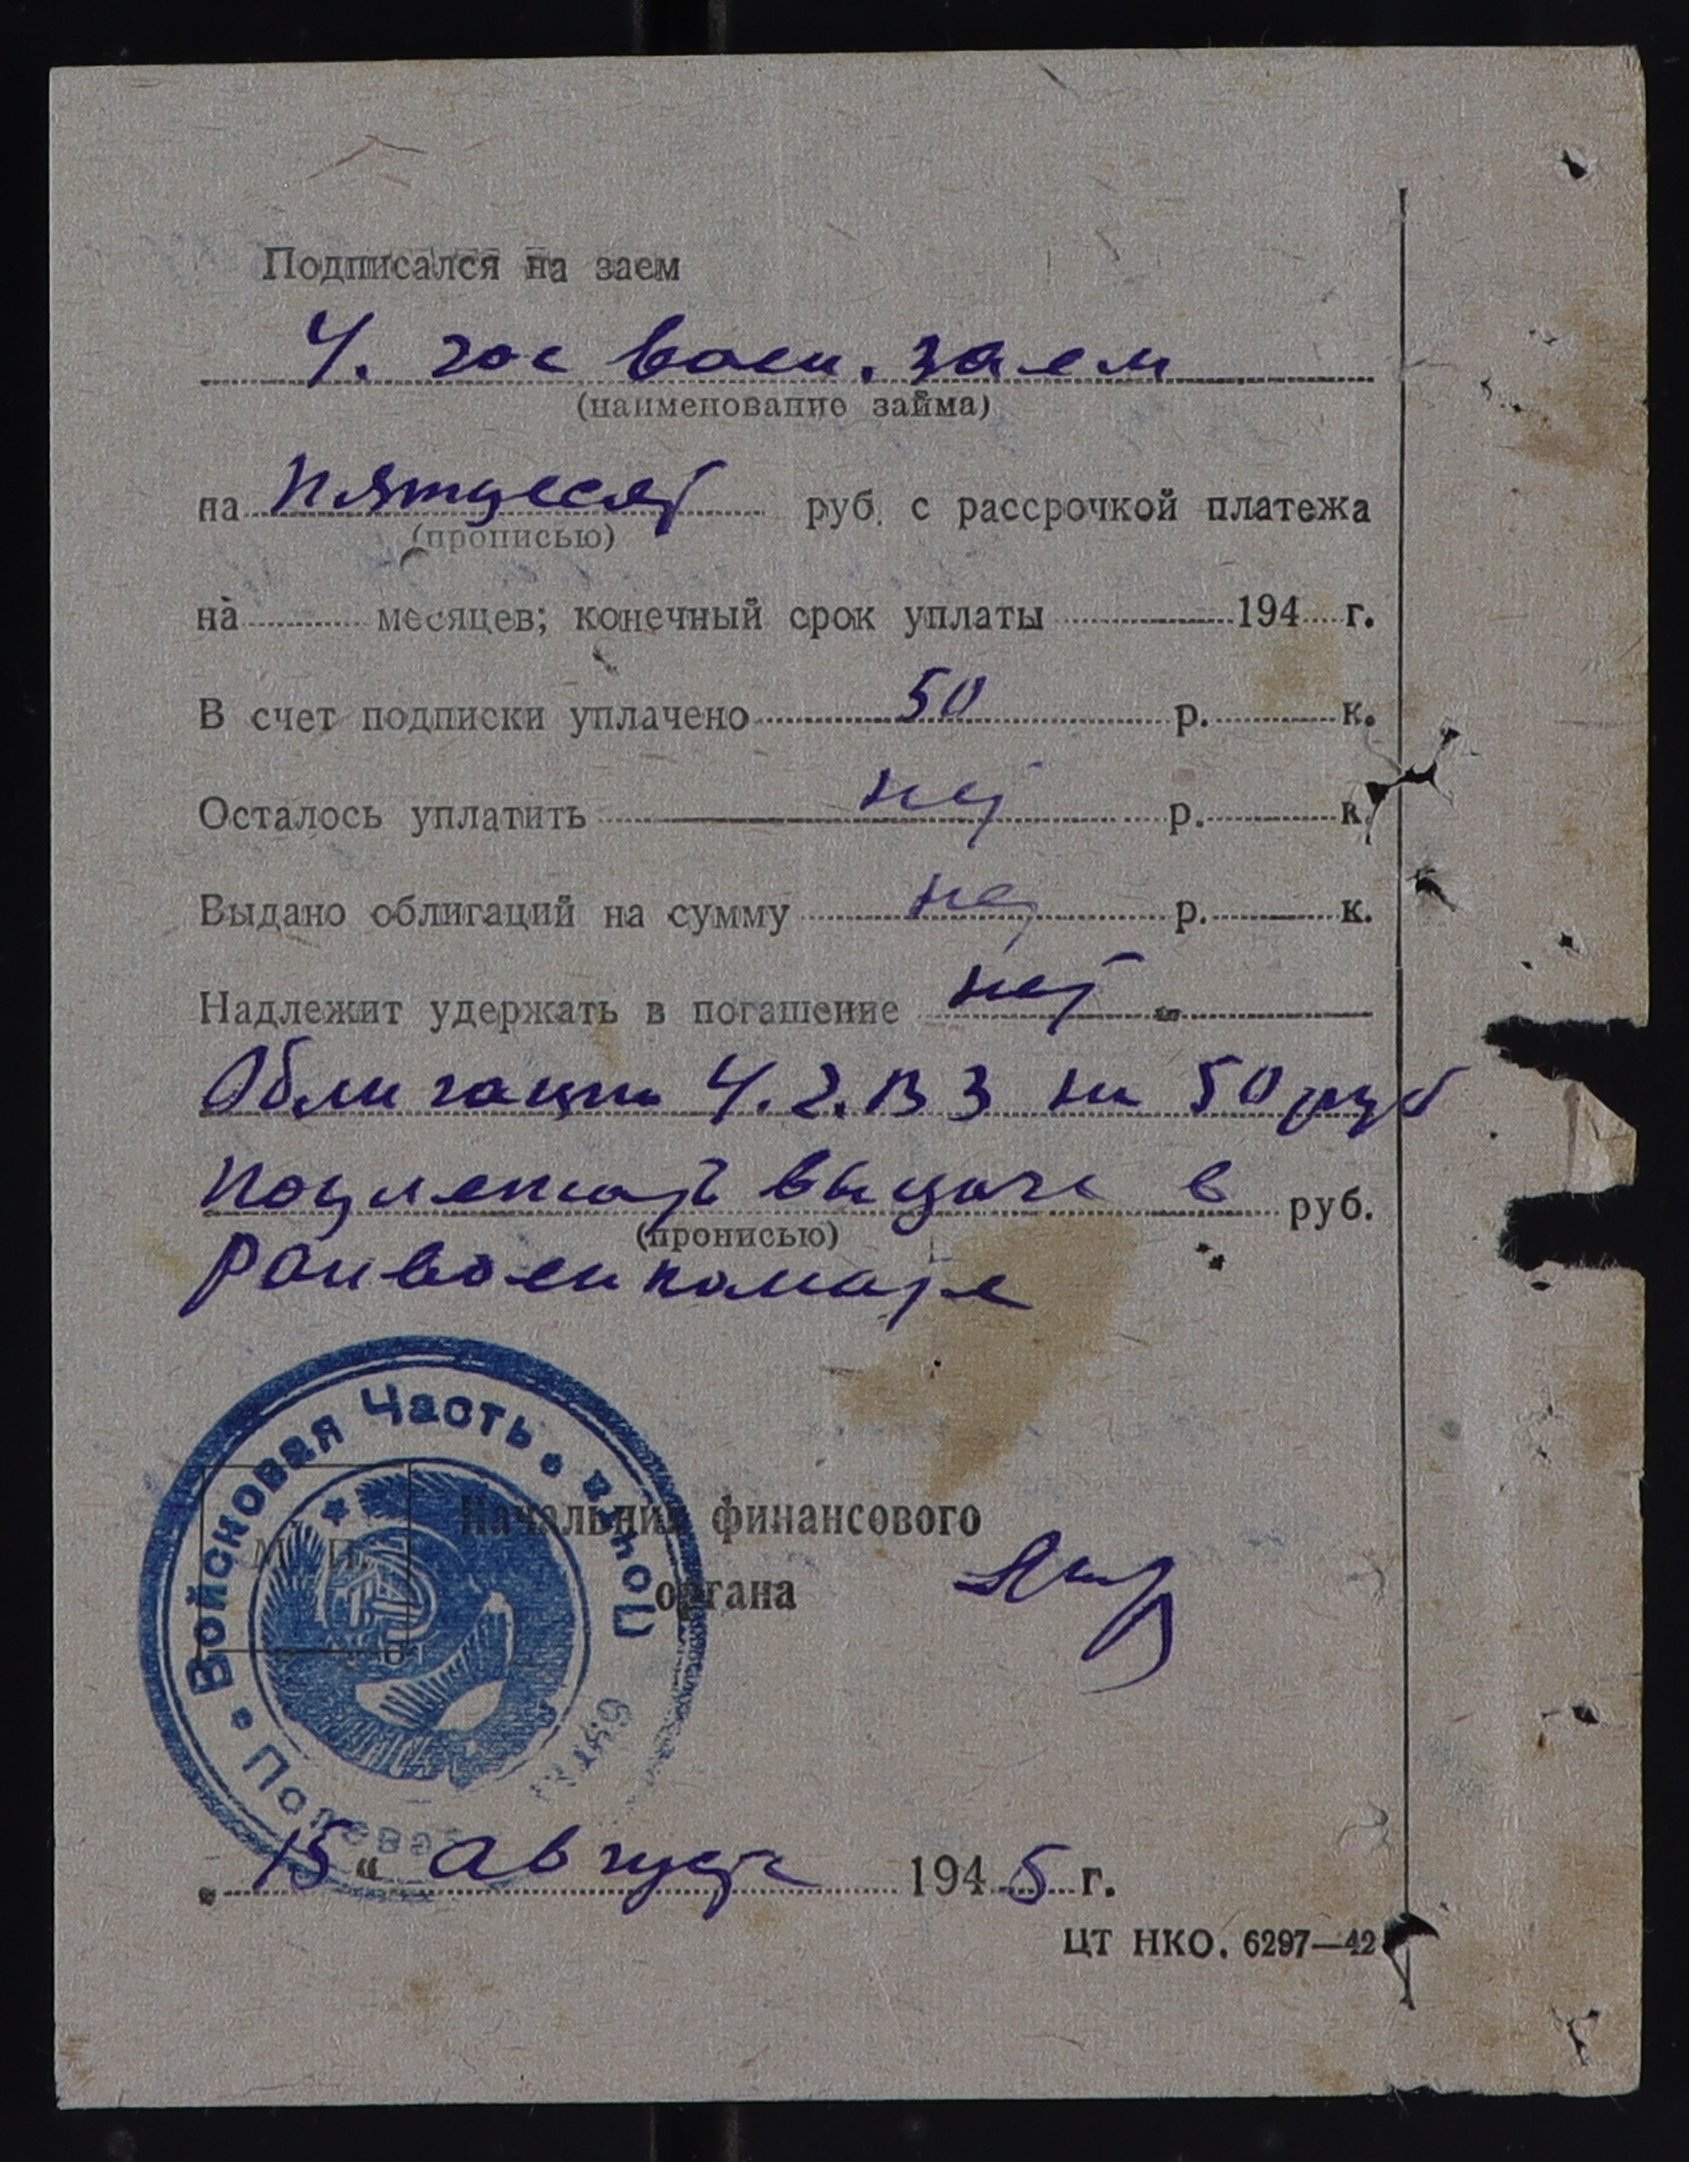 Подписался на заем
4. гос воен. заем
(наименование займа)
на пятдесят руб. с рассрочкой платежа
(прописью)
на месяцев; конечный срок уплаты 194 г.
В счет подписки уплачено 50 р. к.
Осталось уплатить нет р. к.
Выдано облигаций на сумму нет р. к.
Надлежит удержать в погашение нет
Облигации 4.г.ВЗ на 50 руб
подлежат выдаче в руб.
(прописью)
райвоенкомате
Войсковая Часть • Полевая Почта
М. П.
Начальник финансового
органа
15 " августа 1945 г.
ЦТ НКО. 6297—42